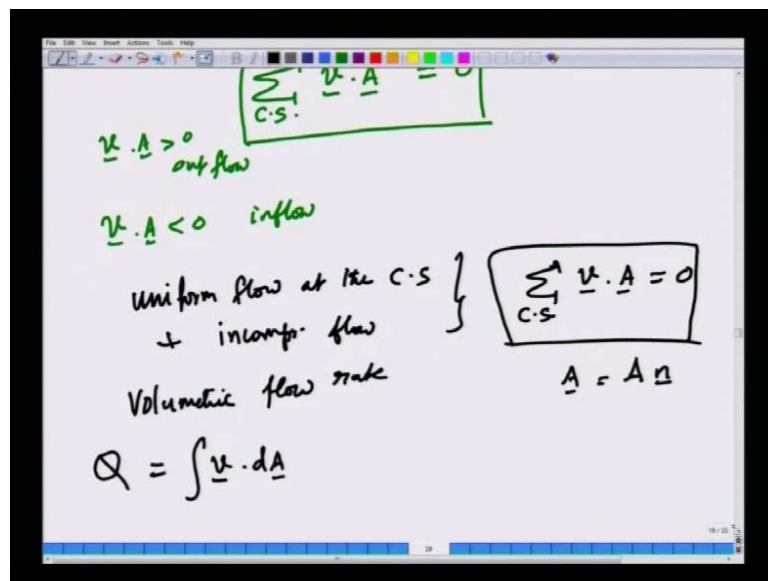 File Edit View Insert Actions Tools Help
∑ v . A = 0
C.S.
v . A > 0
out flow
v . A < 0 inflow
uniform flow at the C.S
+ incompr. flow
∑ v . A = 0
C.S.
A = A n
Volumetric flow rate
Q = ∫ v . dA